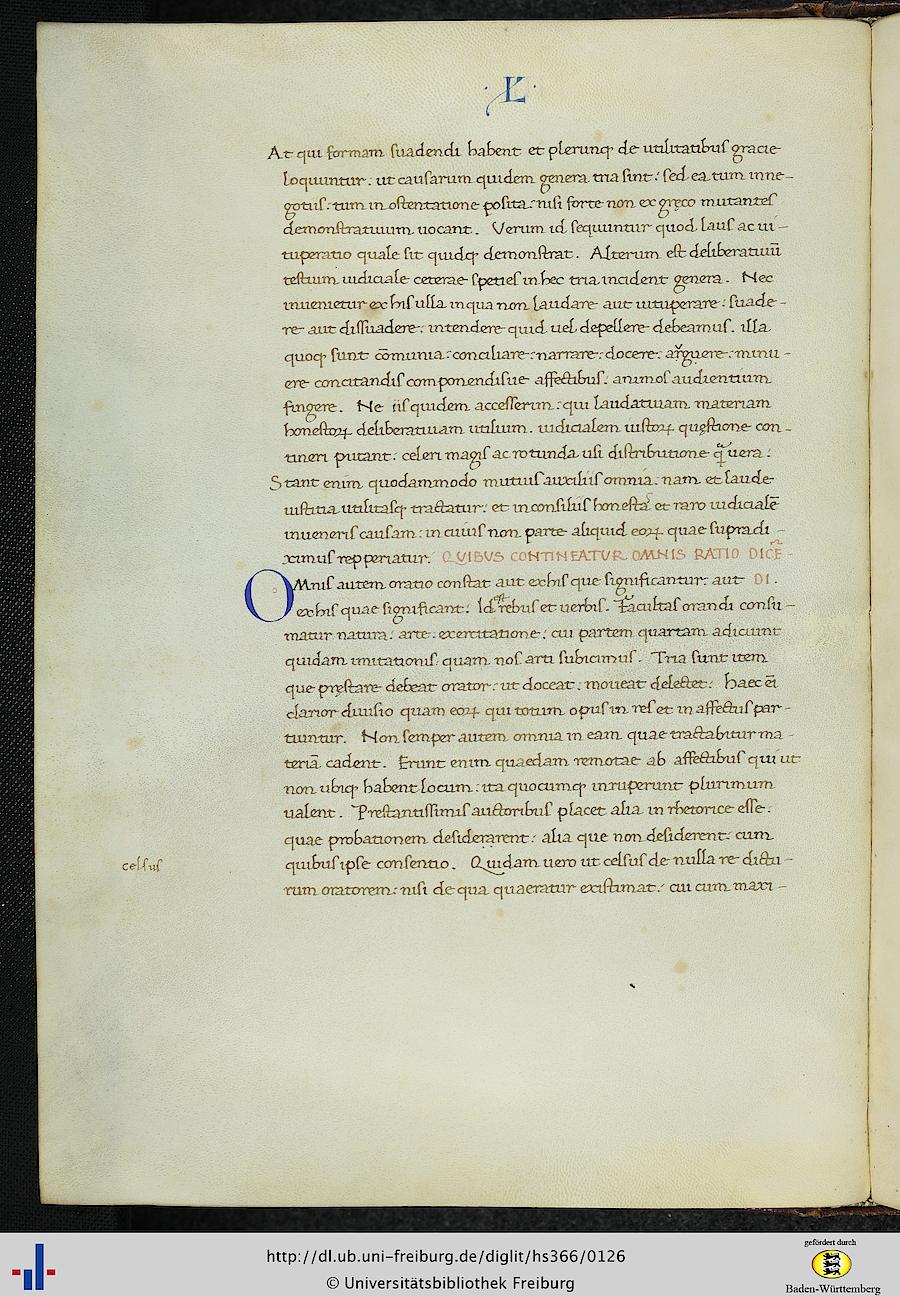 · L ·
At qui formam suadendi habent et plerunq; de utilitatibus gracie
loquuntur: ut causarum quidem genera tria sint: sed ea tum inne-
gotiis: tum in ostentatione posita: nisi forte non ex gręco mutantes
demonstratiuum uocant. Verum id sequuntur quod laus ac ui-
tuperatio quale sit quidq; demonstrat. Alterum est deliberatiuū
testium iudiciale ceterae speties in hec tria incident genera. Nec
inuenietur ex his ulla in qua non laudare aut uituperare: suade-
re aut dissuadere: intendere quid uel depellere debeamus. illa
quoq; sunt cōmunia: conciliare: narrare: docere: arguere: minu-
ere concitandis componendisue affectibus: animos audientium
fingere. Ne iis quidem accesserim: qui laudatiuam materiam
honestoꝝ deliberatiuam utilium. iudicialem iustoꝝ quęstione con-
tineri putant: celeri magis ac rotunda usi distributione q̄ uera:
Stant enim quodammodo mutuis auxiliis omnia: nam et laude
iustitia utilitasq; tractatur: et in consiliis honesta et raro iudicialē
inueneris causam: in cuius non parte aliquid eoꝝ quae supra di-
ximus repperiatur. QVIBVS CONTINEATVR OMNIS RATIO DICĒ-
OMnis autem oratio constat aut ex his que significantur: aut DI.
ex his quae significant: Id est rebus et uerbis. Facultas orandi consu-
matur natura: arte: exercitatione: cui partem quartam adiciunt
quidam imitationis quam nos arti subicimus. Tria sunt item
que pręstare debeat orator: ut doceat: moueat delectet: haec ēi
clarior diuisio quam eoꝝ qui totum opus in res et in affectus par-
tiuntur. Non semper autem omnia in eam quae tractabitur ma-
teriā cadent. Erunt enim quaedam remotae ab affectibus qui ut
non ubiq; habent locum: ita quocumq; inruperunt plurimum
ualent. Prestantissimis auctoribus placet alia in rhetorice esse:
quae probationem desiderarent: alia que non desiderent: cum
quibus ipse consentio. Quidam uero ut celsus de nulla re dictu-
celsus
rum oratorem: nisi de qua quaeratur existimat: cui cum maxi-
http://dl.ub.uni-freiburg.de/diglit/hs366/0126
© Universitätsbibliothek Freiburg
gefördert durch
Baden-Württemberg